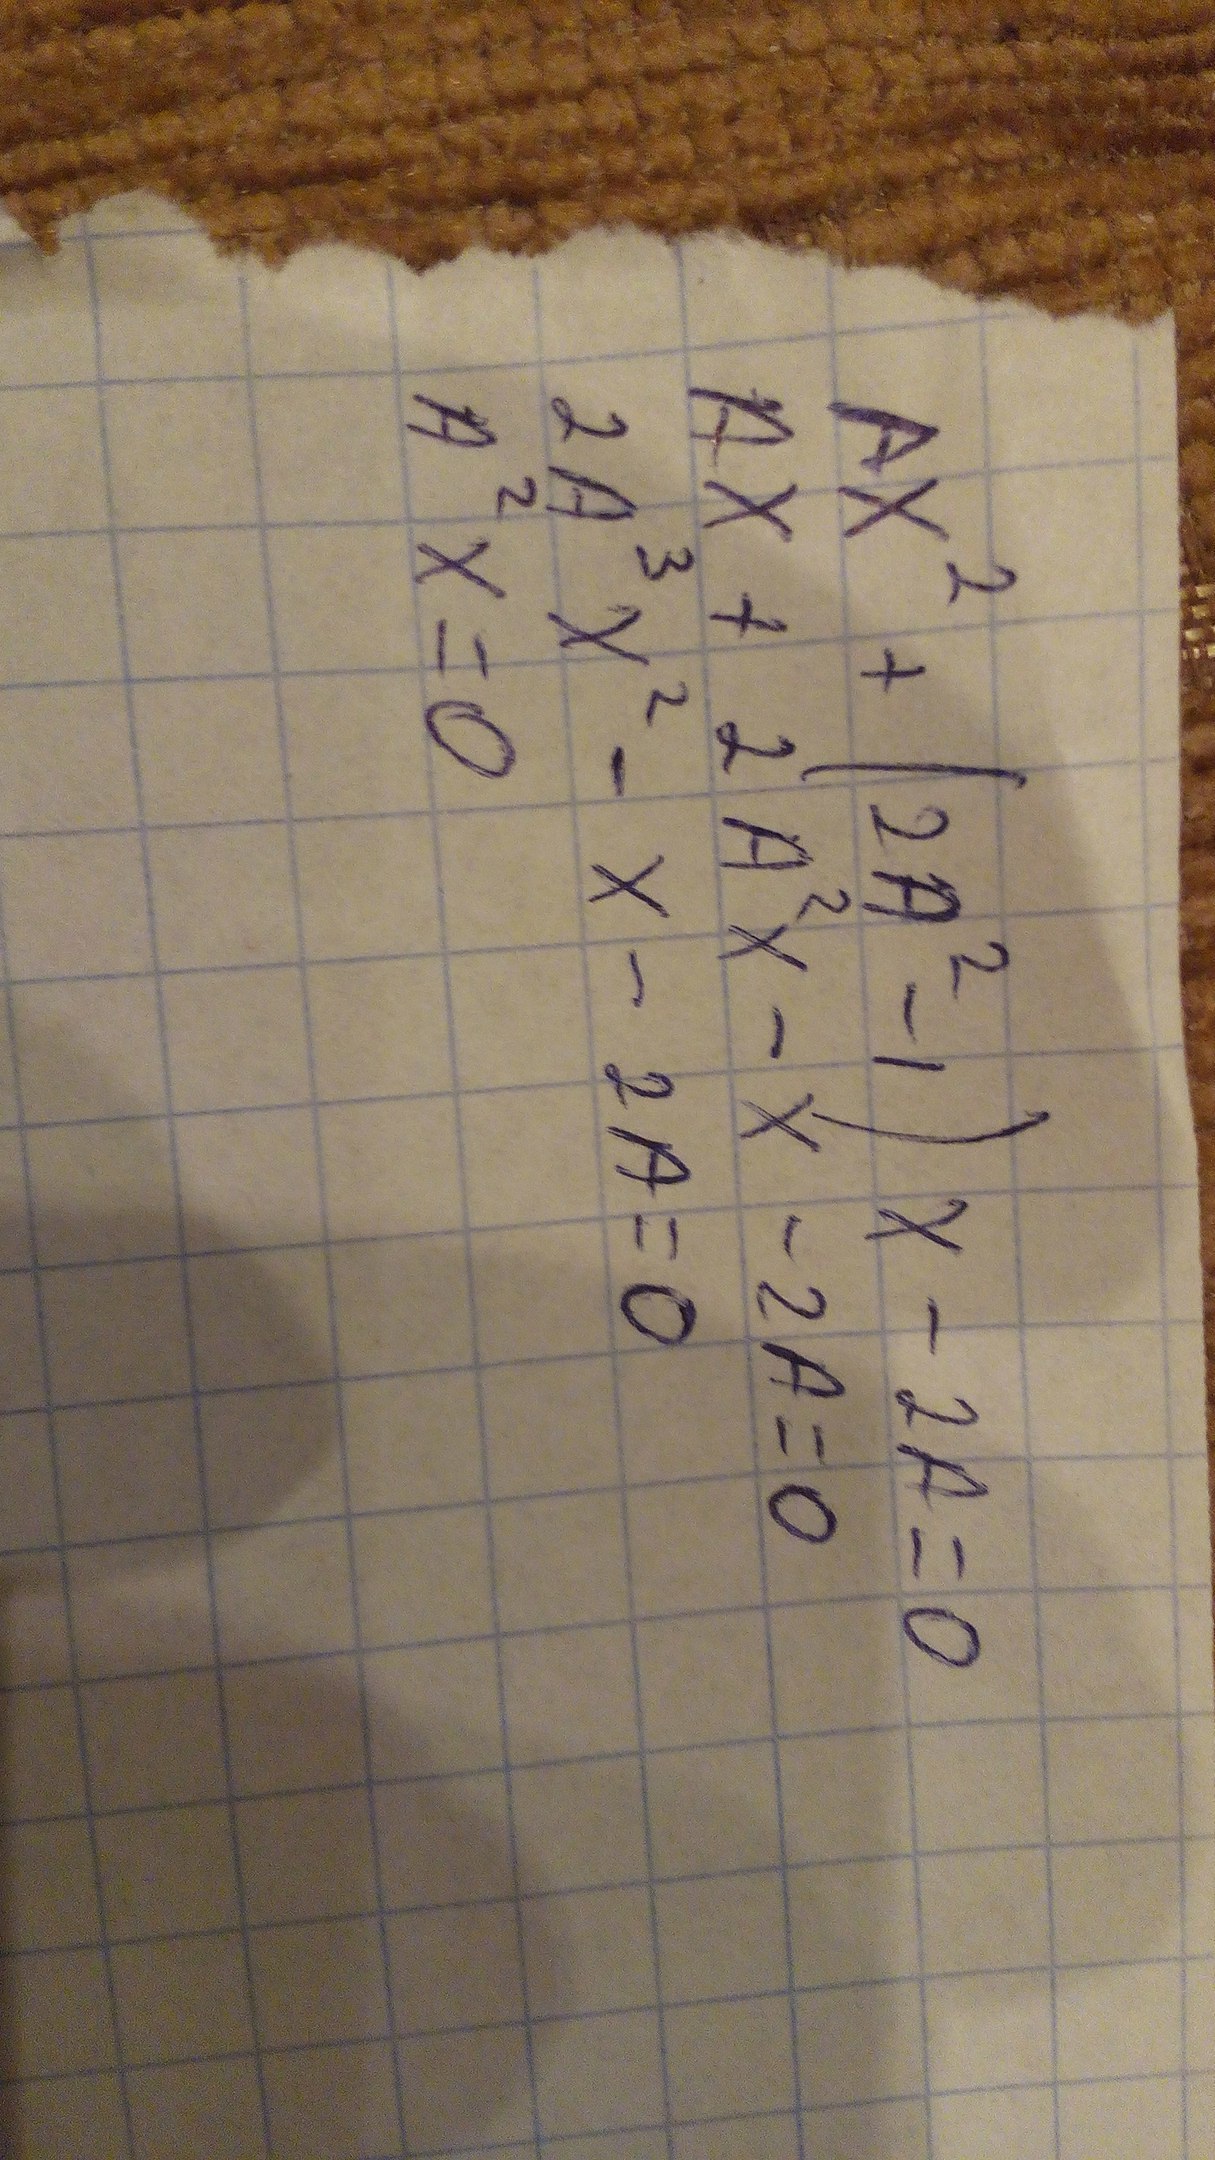 AX² + (2A² - 1)X - 2A = 0
AX + 2A²X - X - 2A = 0
2A³X² - X - 2A = 0
A²X = 0